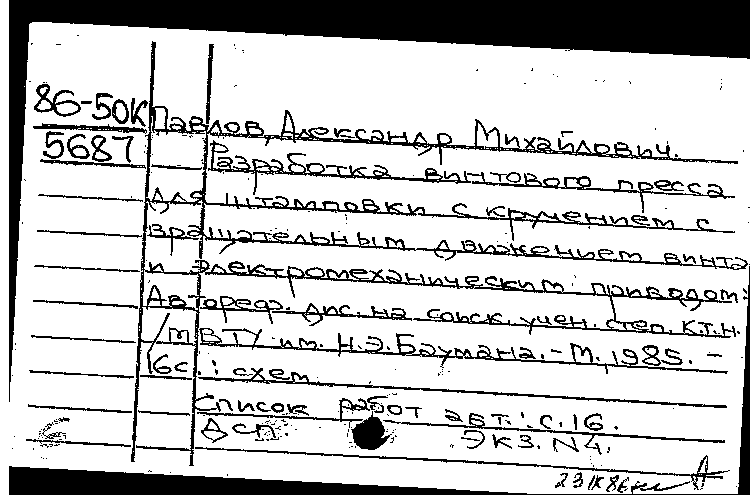 86-50К
5687
Павлов, Александр Михайлович.
Разработка винтового пресса
для штамповки с кручением с
вращательным движением винта
и электромеханическим приводом:
Автореф. дис. на соиск. учен. степ. к.т.н.
/МВТУ им. Н.Э. Баумана. - М., 1985. -
16с.: схем.
Список работ авт.: с.16.
Дсп. Экз. N4.
23 IX 86